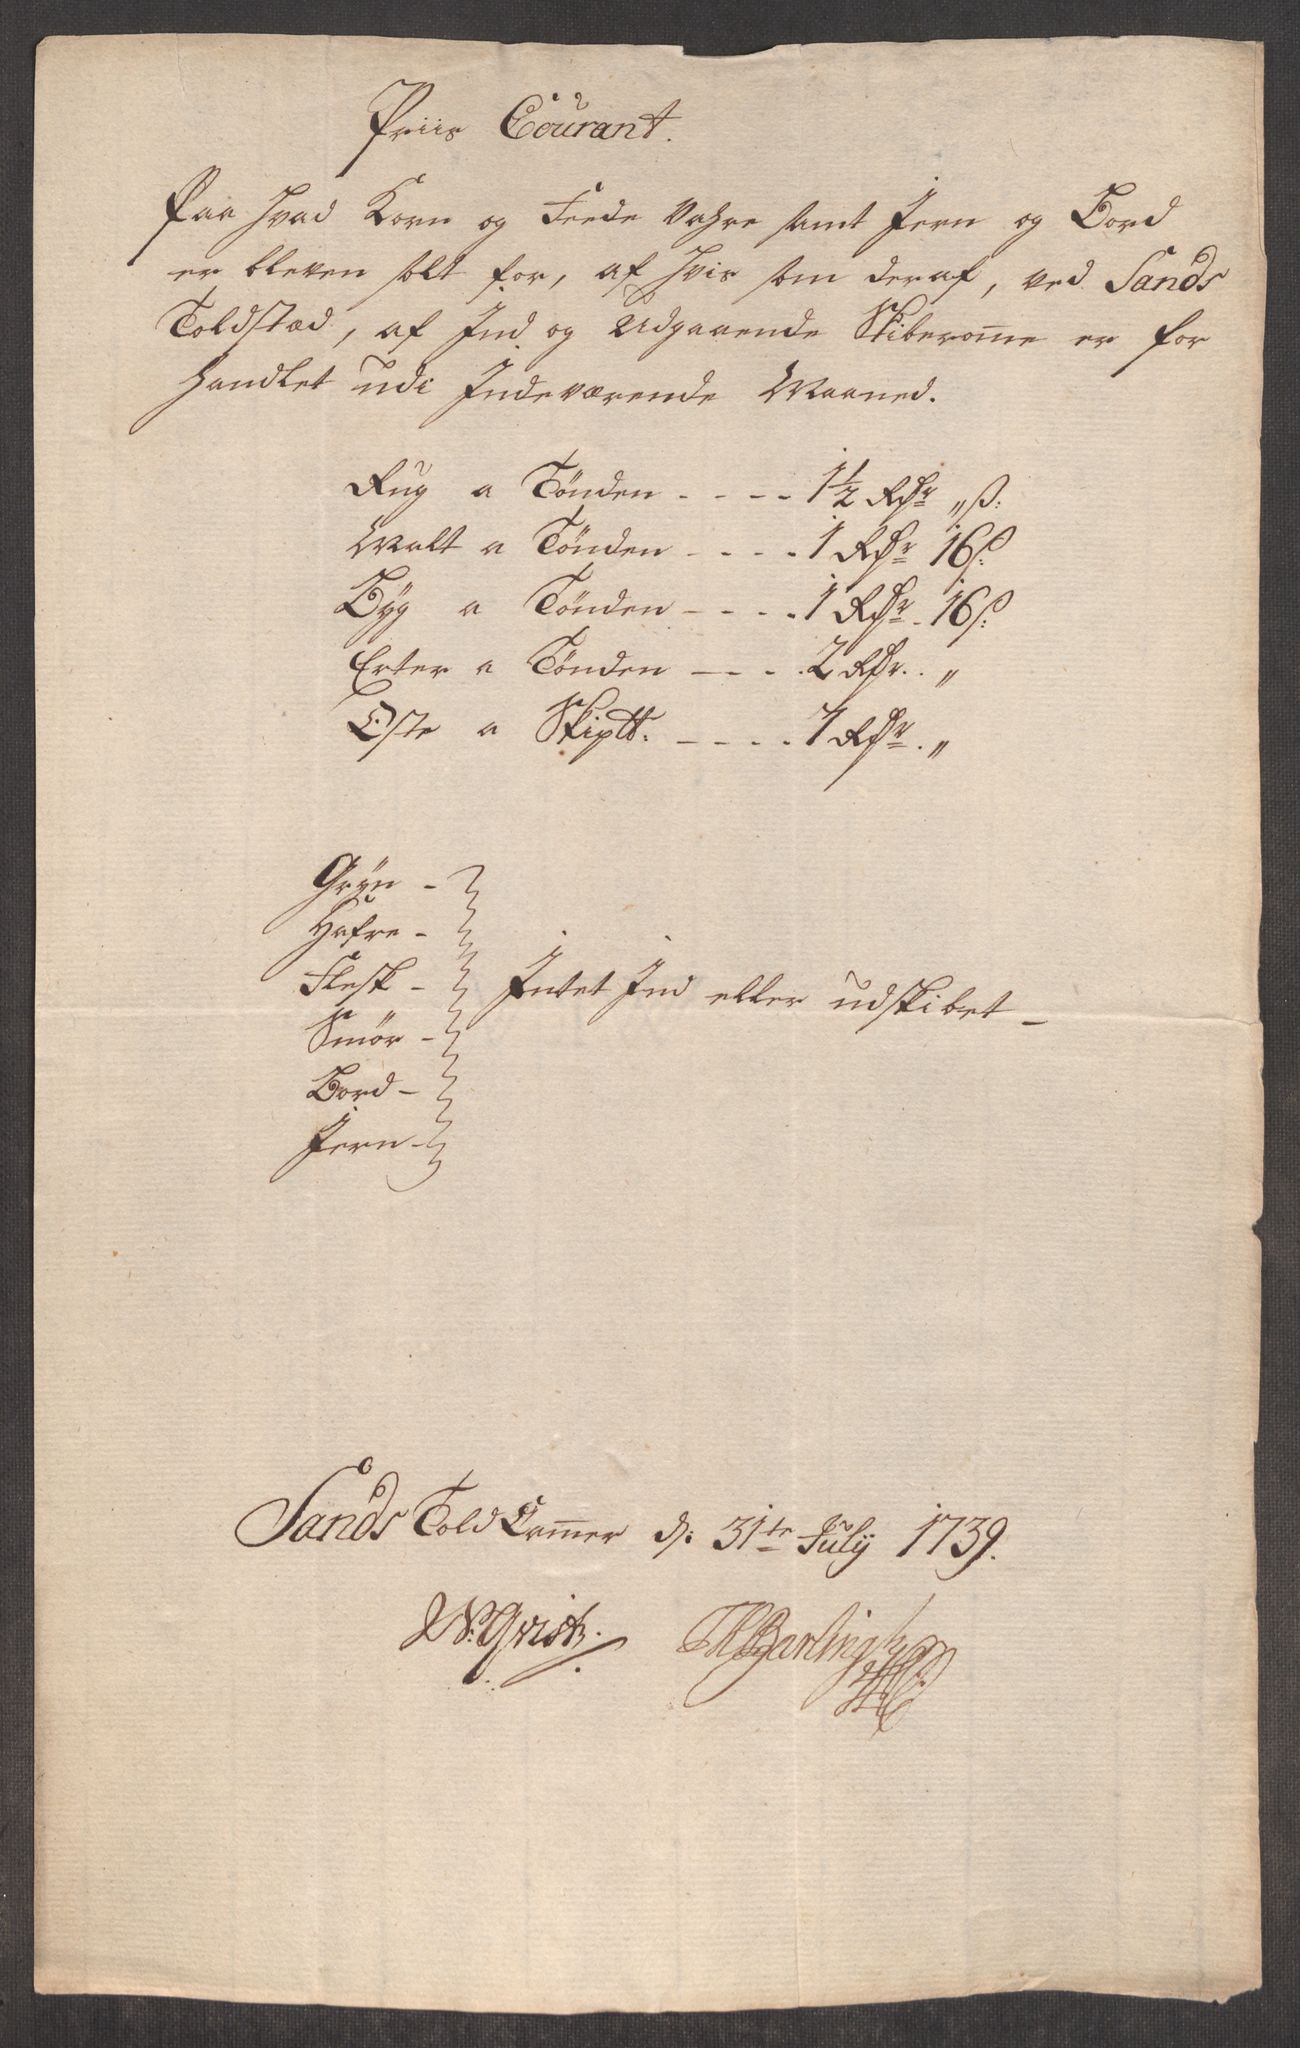 Priis Courant.
Paa hvad Korn og Feede Vahre samt Jern og Bord
er bleven solt for, af hvis som deraf, ved Sands
Toldstæd, af Ind og Udgaaende Skiberom̄e er for
handlet udi Indeværende Maaned.
Rug a Tønden - - - - 1½ Rdr „ ß:
Malt a Tønden - - - - 1 Rdr 16 ß:
Byg a Tønden - - - - 1 Rdr. 16 ß:
Erter a Tønden - - - - 2 Rdr. „
Oste a Skip℔: - - - - 7 Rdr. „
Gryn -
Hafre -
Flesk -
Smør -
Bord -
Jern -
Intet Ind eller udskibet -
Sands Told Cam̄er d: 31te July 1739.